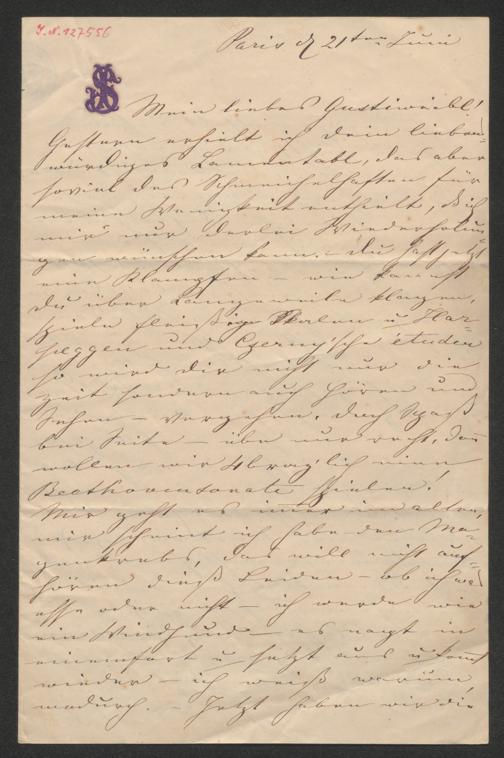 J.N. 127556
Paris d 21ten Juni
Mein liebes Gustiweibl!
Gestern erhielt ich dein liebens-
würdiges Lamentabl, das aber
soviel des Schmeichelhaften für
meine Wenigkeit enthielt, ich
mir nur derlei Wiederholun-
gen wünschen kann. Du hast jetzt
eine Klampfen – wie kannst
du über Langeweile klagen,
spiele fleißig Skalen u Har-
peggen und Czerny'sche études
so wird dir nicht nur die
Zeit sondern auch Hören und
Sehen – vergehen. Doch Spaß
bei Seite – übe nur recht, dann
wollen wir 4bratzlich eine
Beethovensonate spielen!
Mir geht es immer im alten,
mir scheint ich habe den Ma-
genkrebs, das will nicht auf-
hören dieß Leiden – ob ich was
esse oder nicht – ich werde wie
ein Windhund – es nagt in
einemfort u setzt aus u kommt
wieder – ich weiß warum,
wodurch. – Jetzt haben wir die